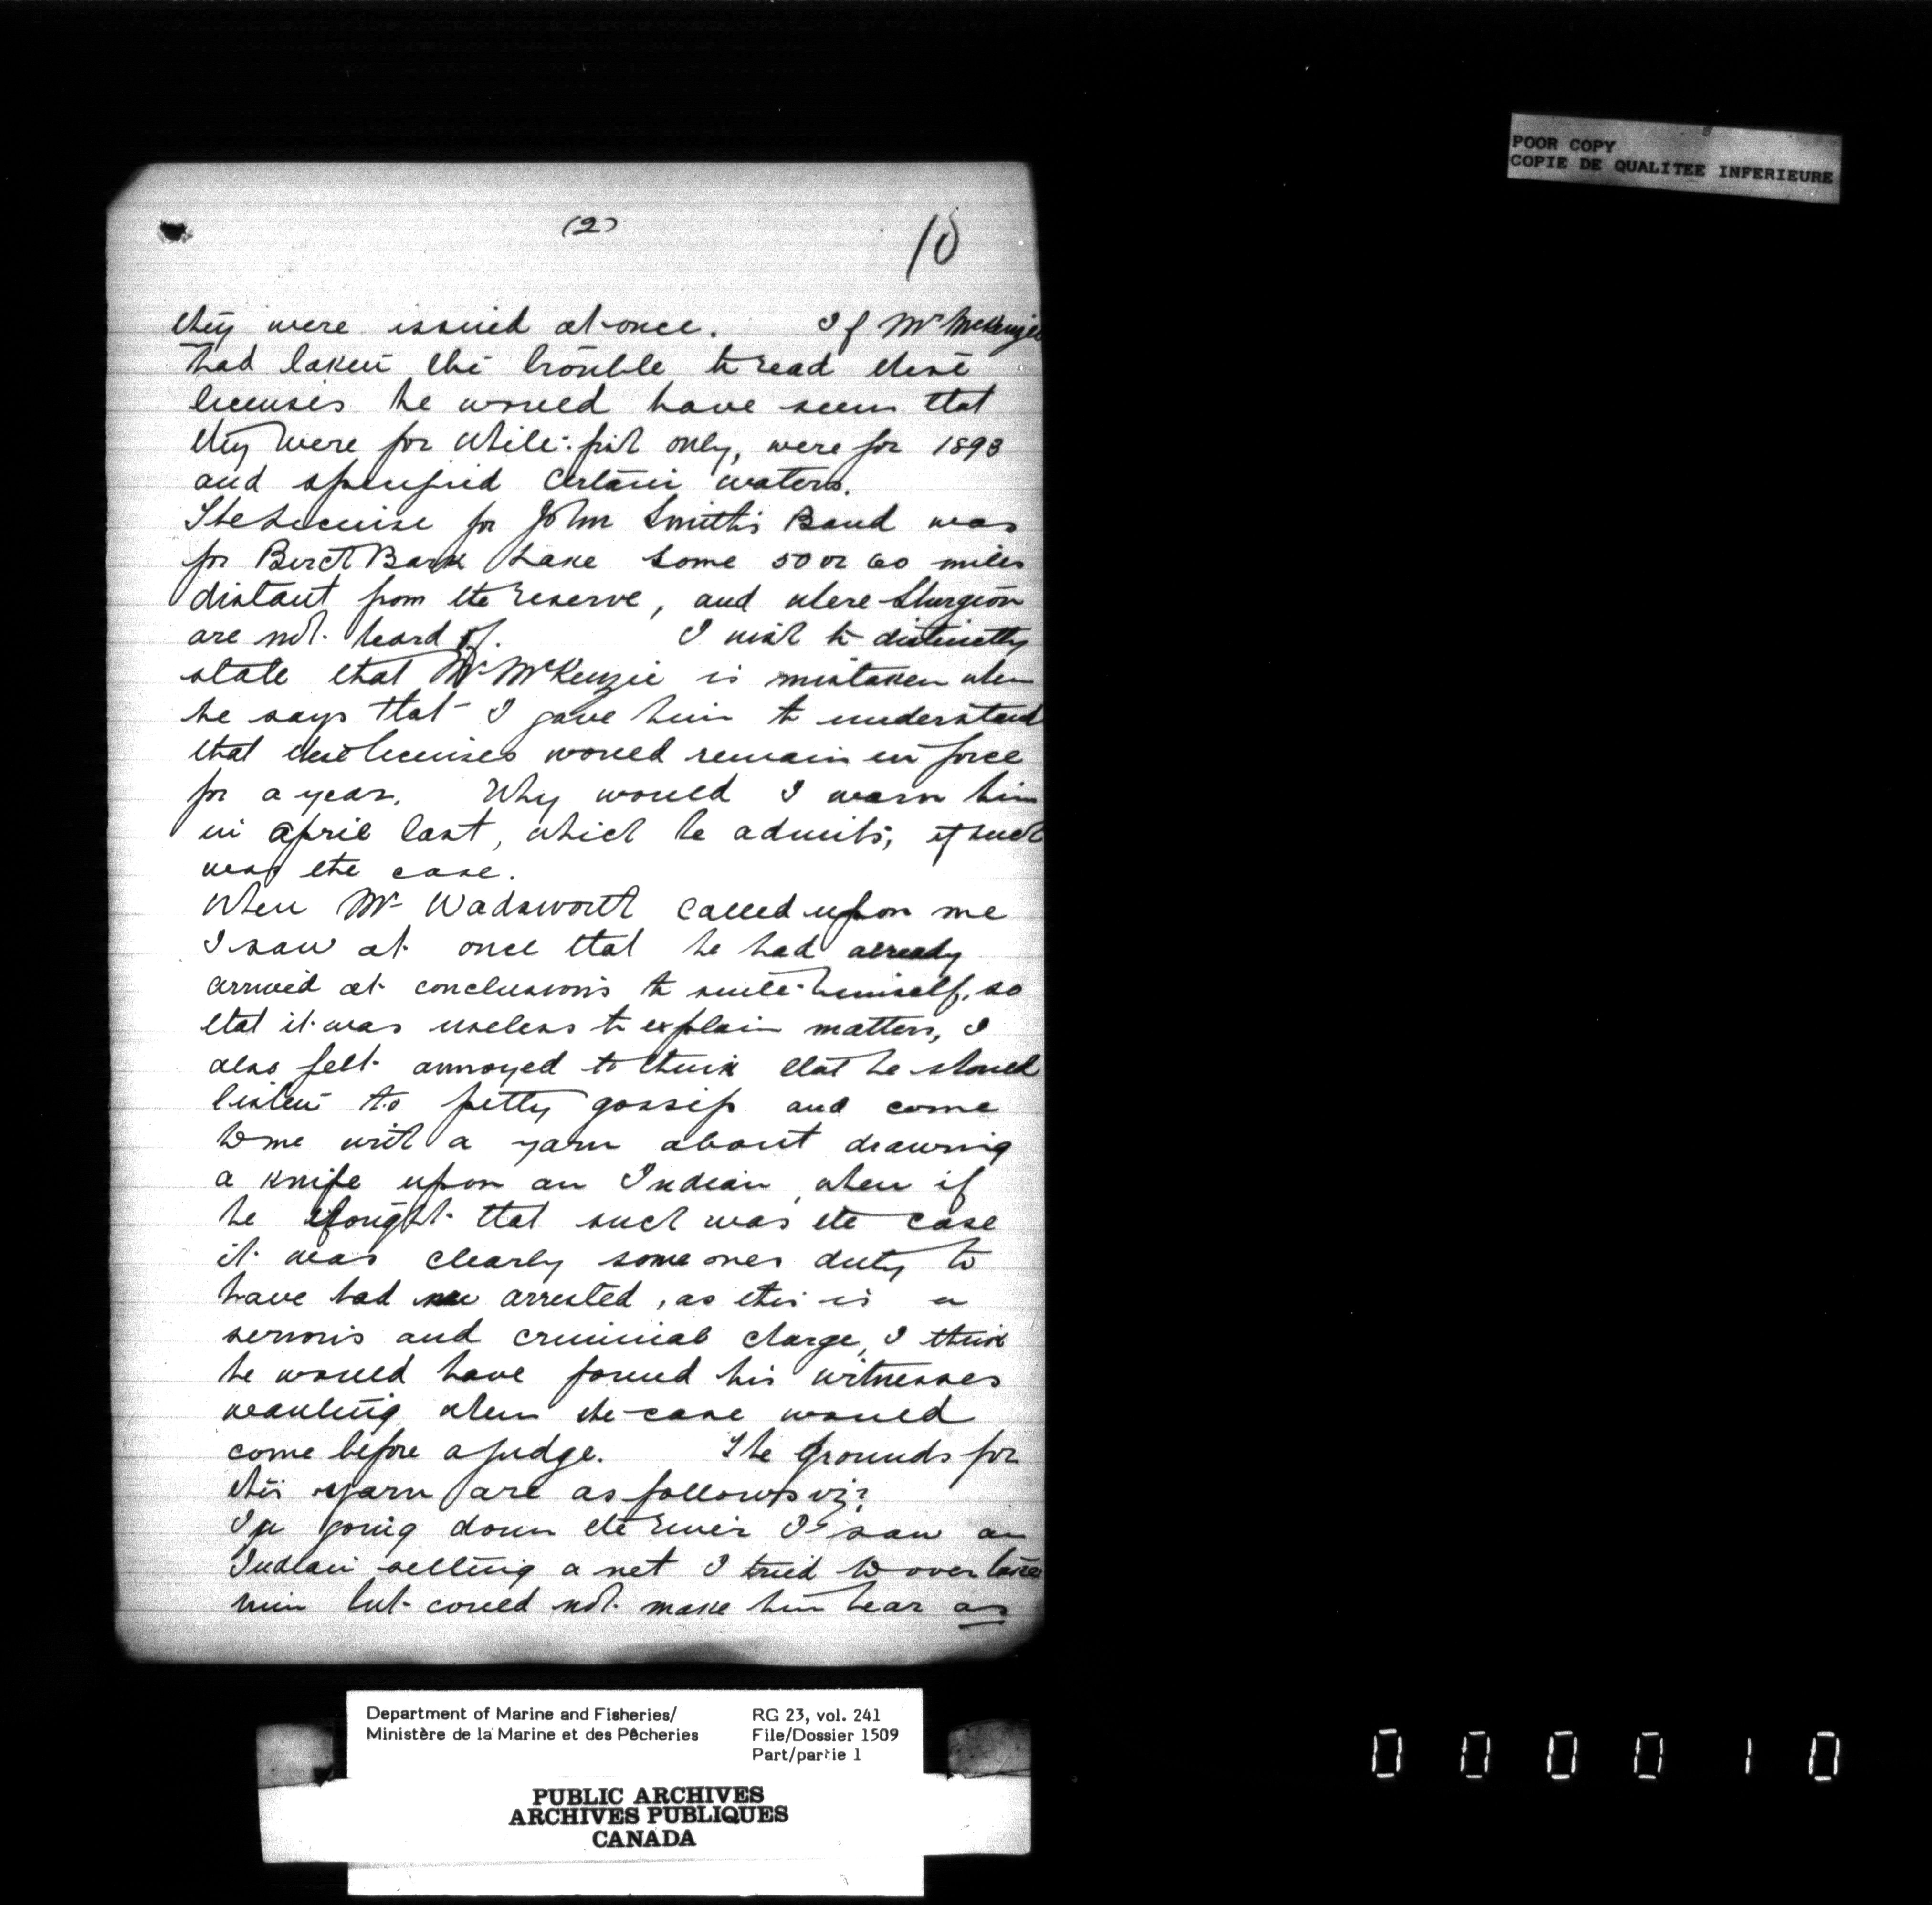 POOR COPY
COPIE DE QUALITEE INFERIEURE
(2)
10
they were issued at once. If Mr McKenzie
had taken the trouble to read these
licenses he would have seen that
they were for white-fish only, were for 1893
and specified certain waters.
The License for John Smith's Band was
for Birch Bark Lake some 50 or 60 miles
distant from the reserve, and where Sturgeon
are not heard of. I wish to distinctly
state that Mr McKenzie is mistaken when
he says that I gave him to understand
that these licenses would remain in force
for a year. Why would I warn him
in April last, which he admits, if such
was the case.
When Mr Wadsworth called upon me
I saw at once that he had already
arrived at conclusions to suite himself, so
that it was useless to explain matters, I
also felt annoyed to think that he should
listen to petty gossip and come
to me with a yarn about drawing
a knife upon an Indian, when if
he thought that such was the case
it was clearly some ones duty to
have had me arrested, as this is a
serious and criminal charge, I think
he would have found his witnesses
wanting when the case would
come before a judge. The grounds for
this yarn are as follows viz:
In going down the river I saw an
Indian setting a net I tried to over take
him but could not make him hear as
Department of Marine and Fisheries/
Ministère de la Marine et des Pêcheries
RG 23, vol. 241
File/Dossier 1509
Part/partie 1
PUBLIC ARCHIVES
ARCHIVES PUBLIQUES
CANADA
000010